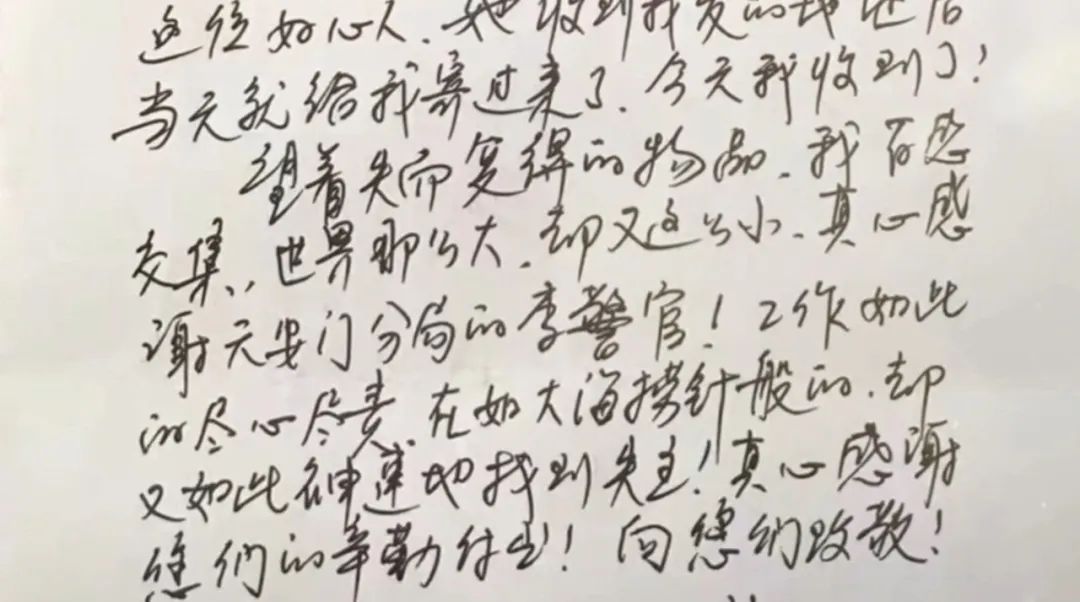 这位好心人、她收到我发的地址后
当天就给我寄过来了、今天我收到了!
望着失而复得的物品、我百感
交集、世界那么大、却又这么小、真心感
谢天安门分局的李警官!工作如此
的尽心尽责、在如大海捞针般的、却
又如此神速地找到失主!真心感谢
您们的辛勤付出!向您们致敬!